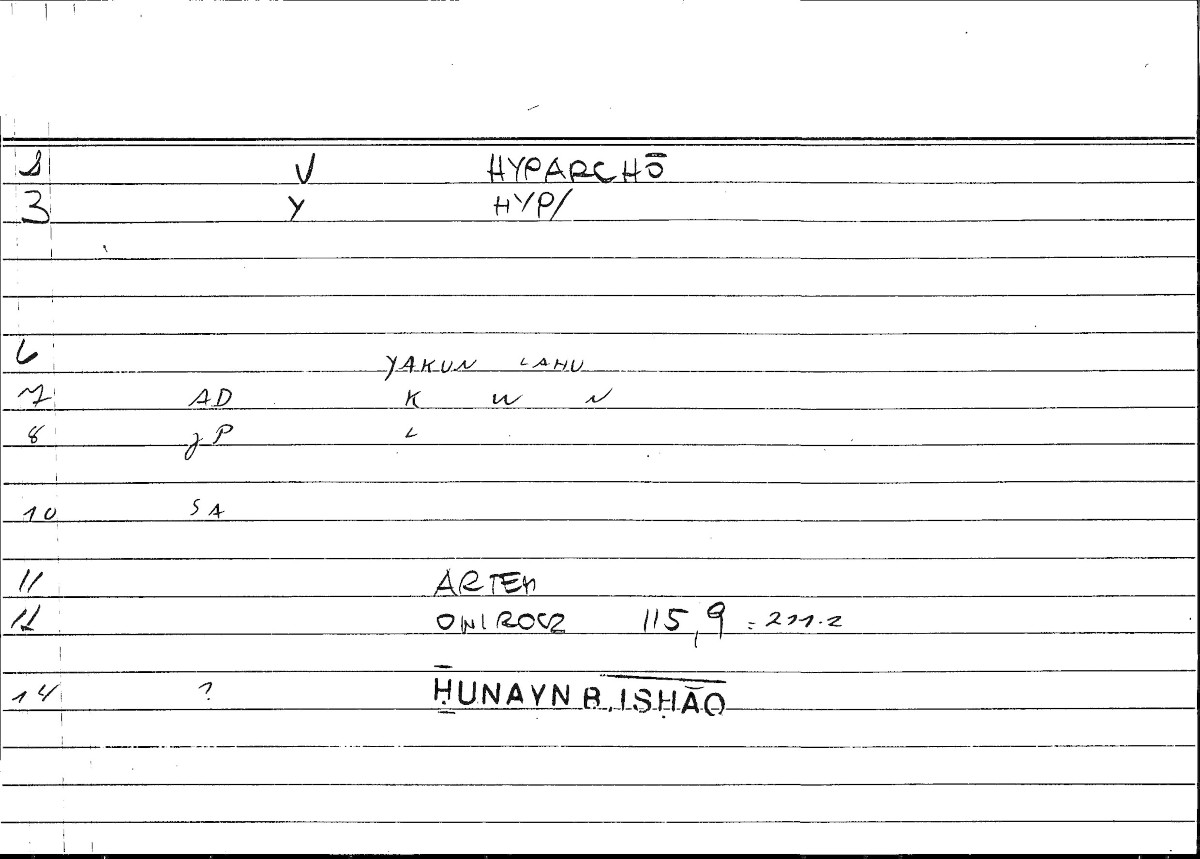 1 V HYPARCHŌ
3 Y HYP/
6 YAKUN LAHU
7 AD K W N
8 JP L
10 SA
11 ARTEM
12 ONIROCR 115,9 = 211.2
14 ? ḤUNAYN B. ISḤĀQ